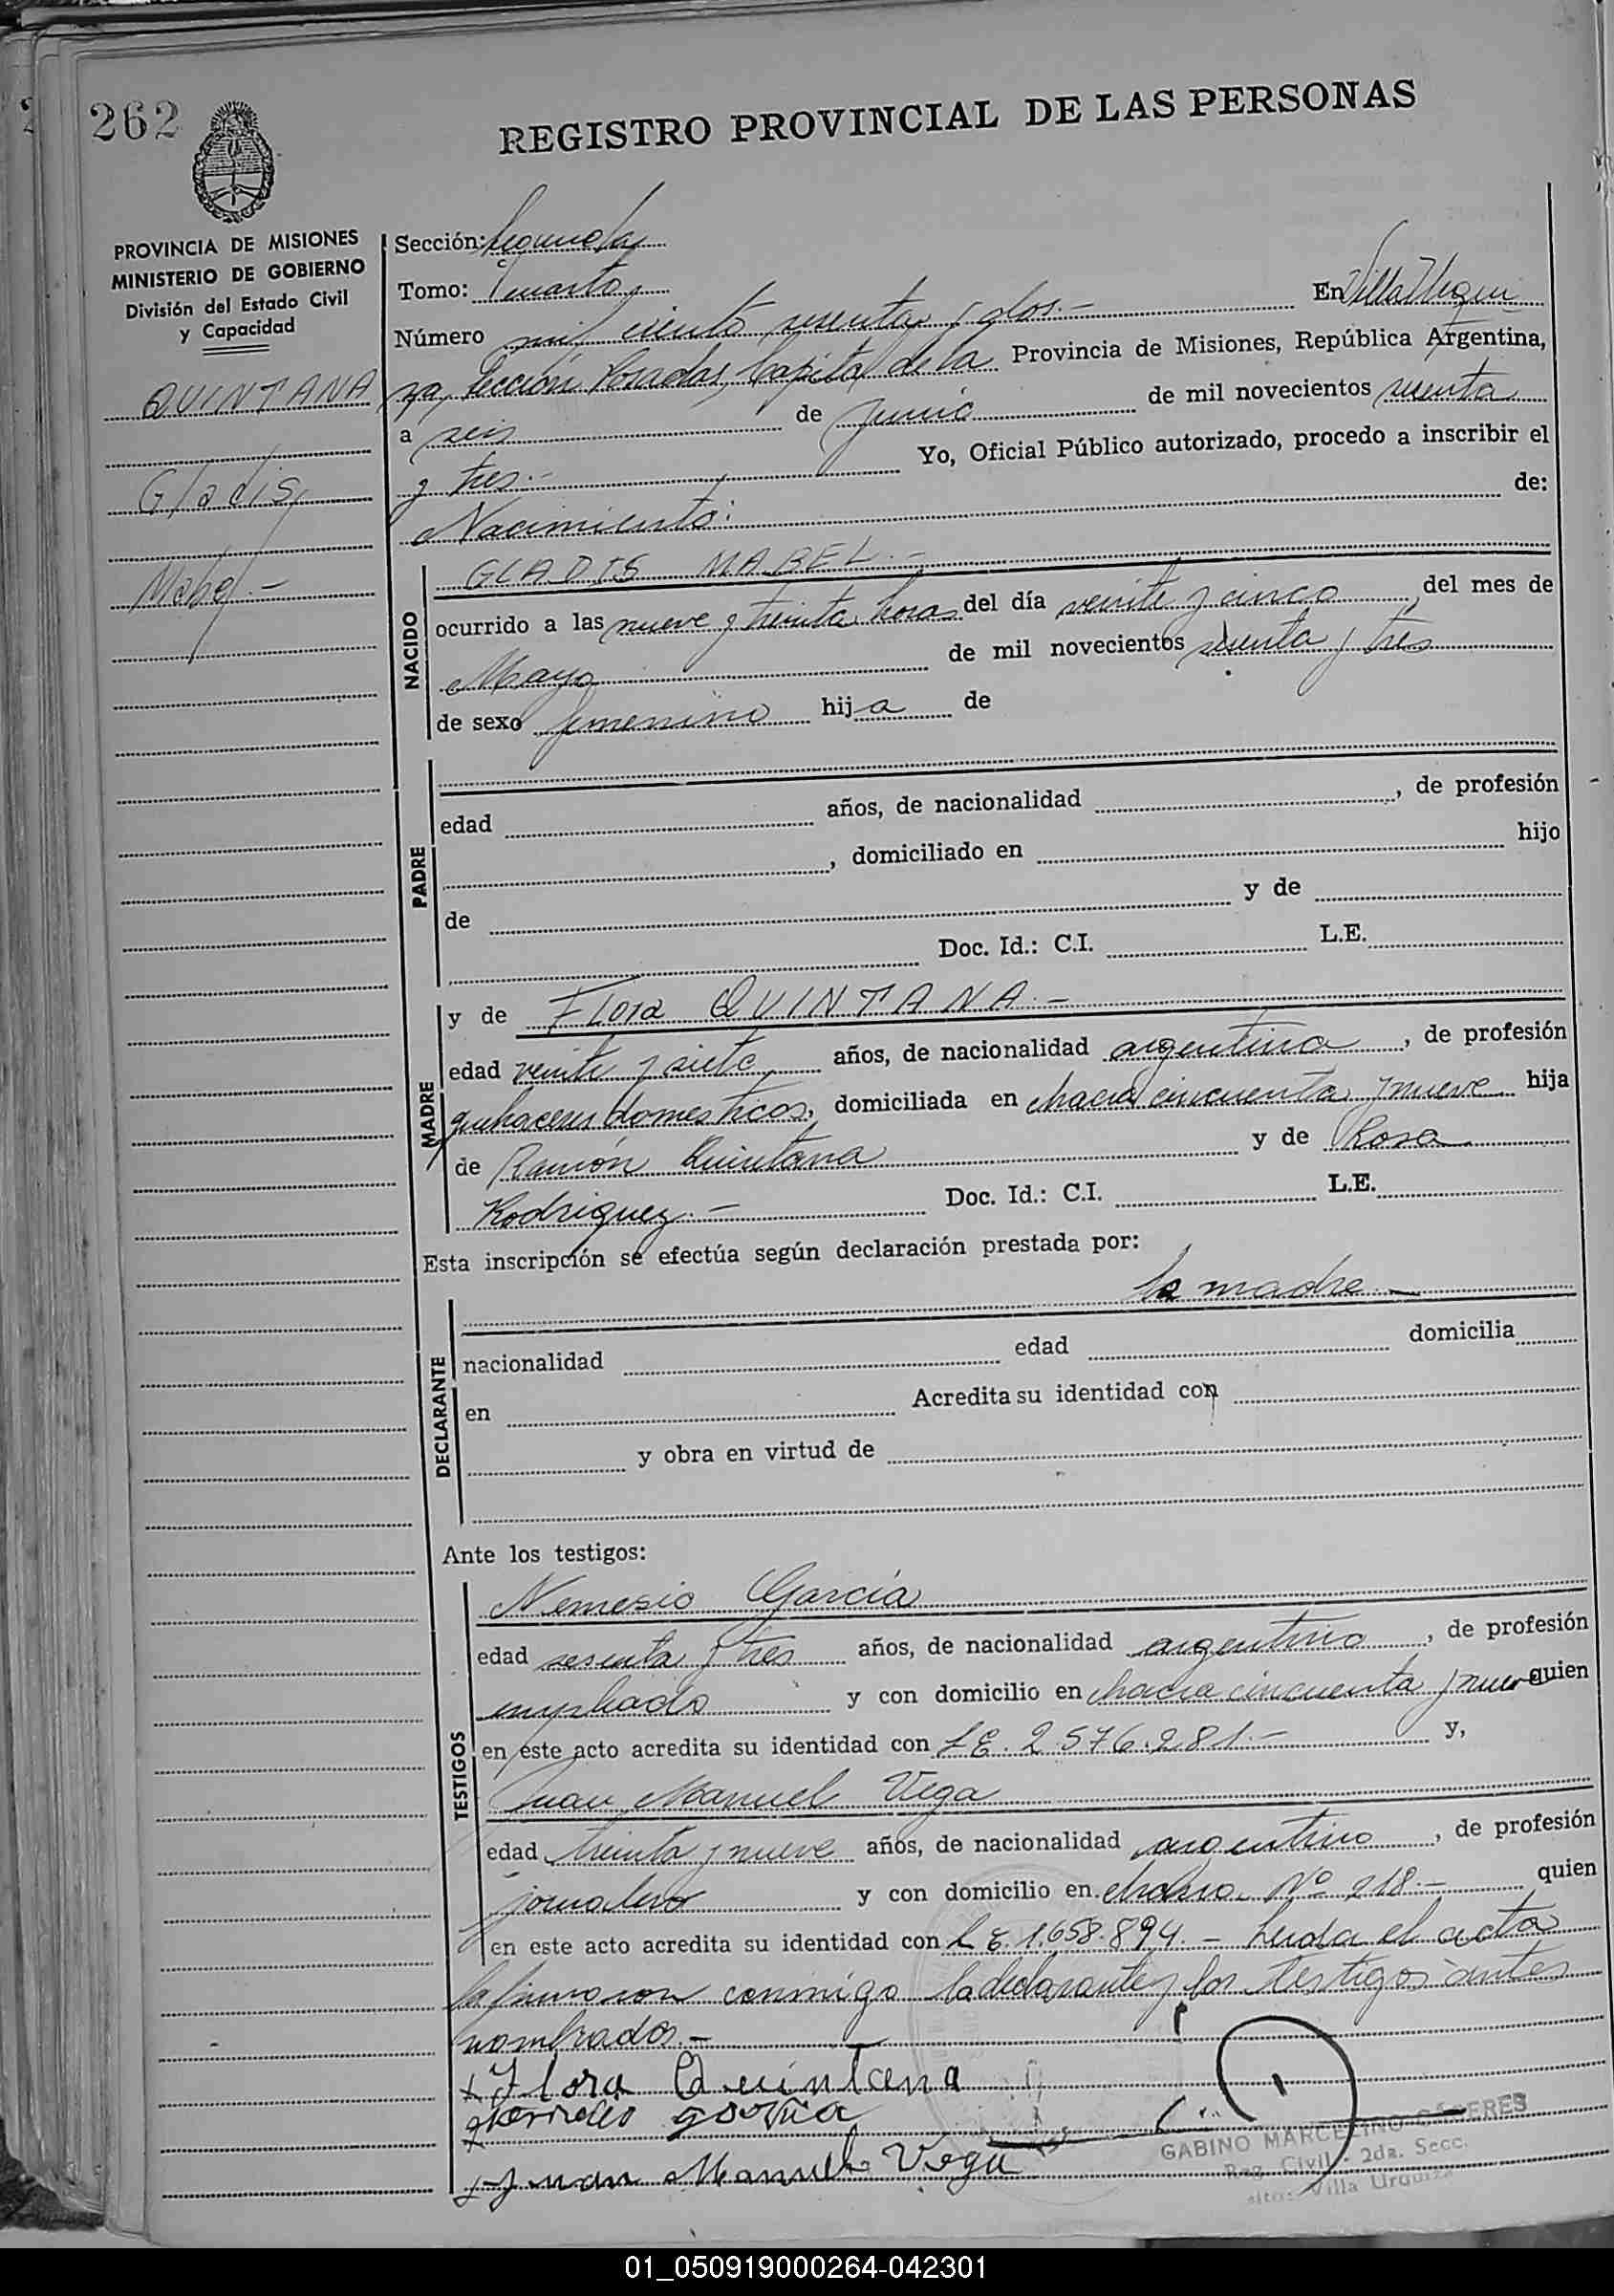 262
REGISTRO PROVINCIAL DE LAS PERSONAS
PROVINCIA DE MISIONES
MINISTERIO DE GOBIERNO
División del Estado Civil
y Capacidad
QUINTANA
Gladis
Mabel.-
Sección: Segunda
Tomo: Cuarto
Número mil ciento sesenta y dos.- En Villa Urqui
za, Sección Posadas, Capital de la Provincia de Misiones, República Argentina,
a seis de Junio de mil novecientos sesenta
y tres.- Yo, Oficial Público autorizado, procedo a inscribir el
Nacimiento: de:
NACIDO
GLADIS MABEL.-
ocurrido a las nueve y treinta horas del día veinte y cinco del mes de
Mayo de mil novecientos sesenta y tres
de sexo femenino hija de
PADRE
edad años, de nacionalidad , de profesión
, domiciliado en hijo
de y de
Doc. Id.: C.I. L.E.
MADRE
y de Flora QUINTANA.-
edad veinte y siete años, de nacionalidad argentina , de profesión
quehaceres domesticos, domiciliada en chacra cincuenta y nueve hija
de Ramón Quintana y de Rosa
Rodriguez.- Doc. Id.: C.I. L.E.
Esta inscripción se efectúa según declaración prestada por:
la madre.-
DECLARANTE
nacionalidad edad domicilia
en Acredita su identidad con
y obra en virtud de
Ante los testigos:
TESTIGOS
Nemesio García
edad sesenta y tres años, de nacionalidad argentino , de profesión
empleado y con domicilio en chacra cincuenta y nueve quien
en este acto acredita su identidad con L.E. 2.576.281.- y,
Juan Manuel Vega
edad treinta y nueve años, de nacionalidad argentino , de profesión
jornalero y con domicilio en chacra Nº 218.- quien
en este acto acredita su identidad con L.E. 1.658.894.- Leida el acta
la firmaron conmigo la declarante y los testigos antes
nombrados.-
x Flora Quintana
Juan Manuel Vega
GABINO MARCELINO CACERES
Reg. Civil - 2da. Secc.
Villa Urquiza
01_050919000264-042301